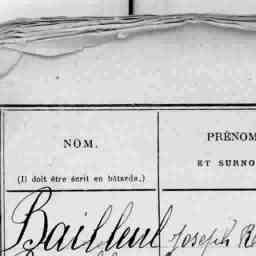 NOM.
PRÉNOM
ET SURNO
(Il doit être écrit en bâtarde.)
Bailleul Joseph Re